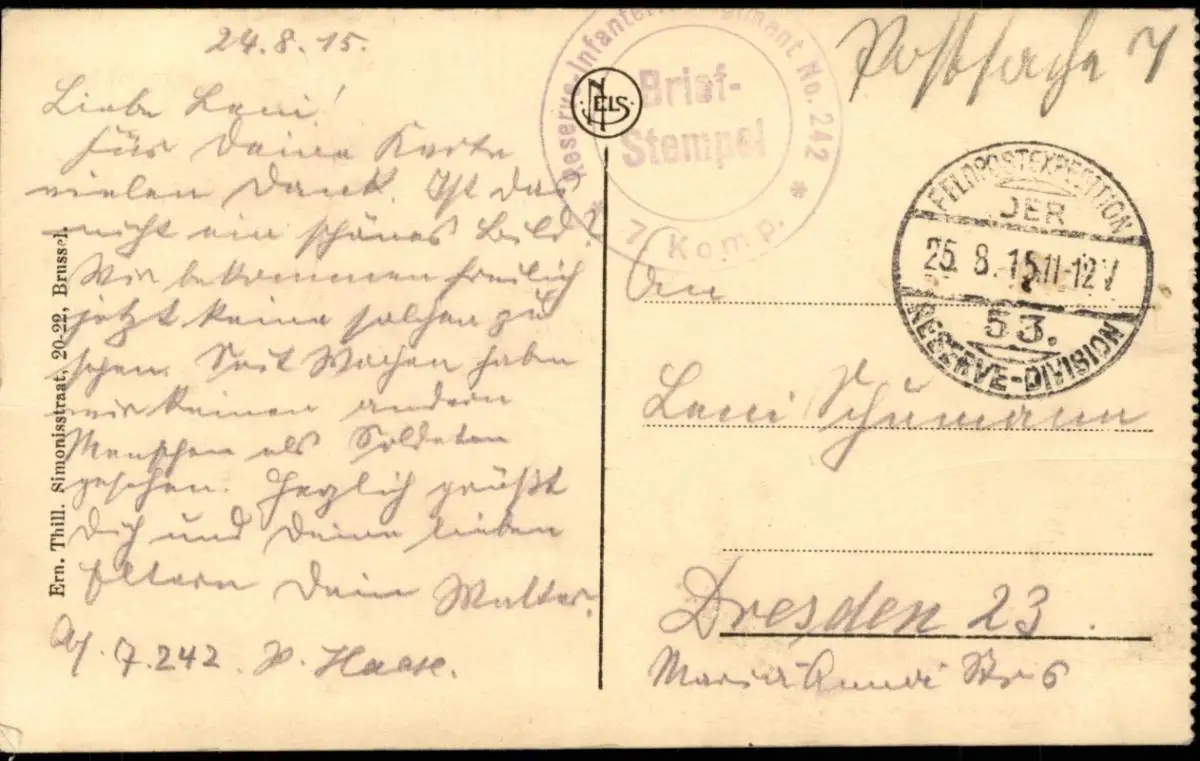 24.8.15.
Liebe Leni!
Für Deine Karte
vielen Dank. Ist das
nicht ein schönes Bild?
Wir bekommen freilich
jetzt keine solchen zu
sehen. Seit Wochen haben
wir keinen andern
Menschen als Soldaten
gesehen. Herzlich grüßt
Dich und Deine lieben
Eltern Dein Walter.
7.242. Haase.
Ern. Thill. Simonisstraat, 20-22, Brussel.
NELS
Reserve-Infanterie-Regiment No. 242
Brief-
Stempel
* 7. Komp. *
FELDPOSTEXPEDITION
DER
25.8.15.11-12V
53.
RESERVE-DIVISION
An
Leni Schumann
Dresden 23.
Maria Str 6